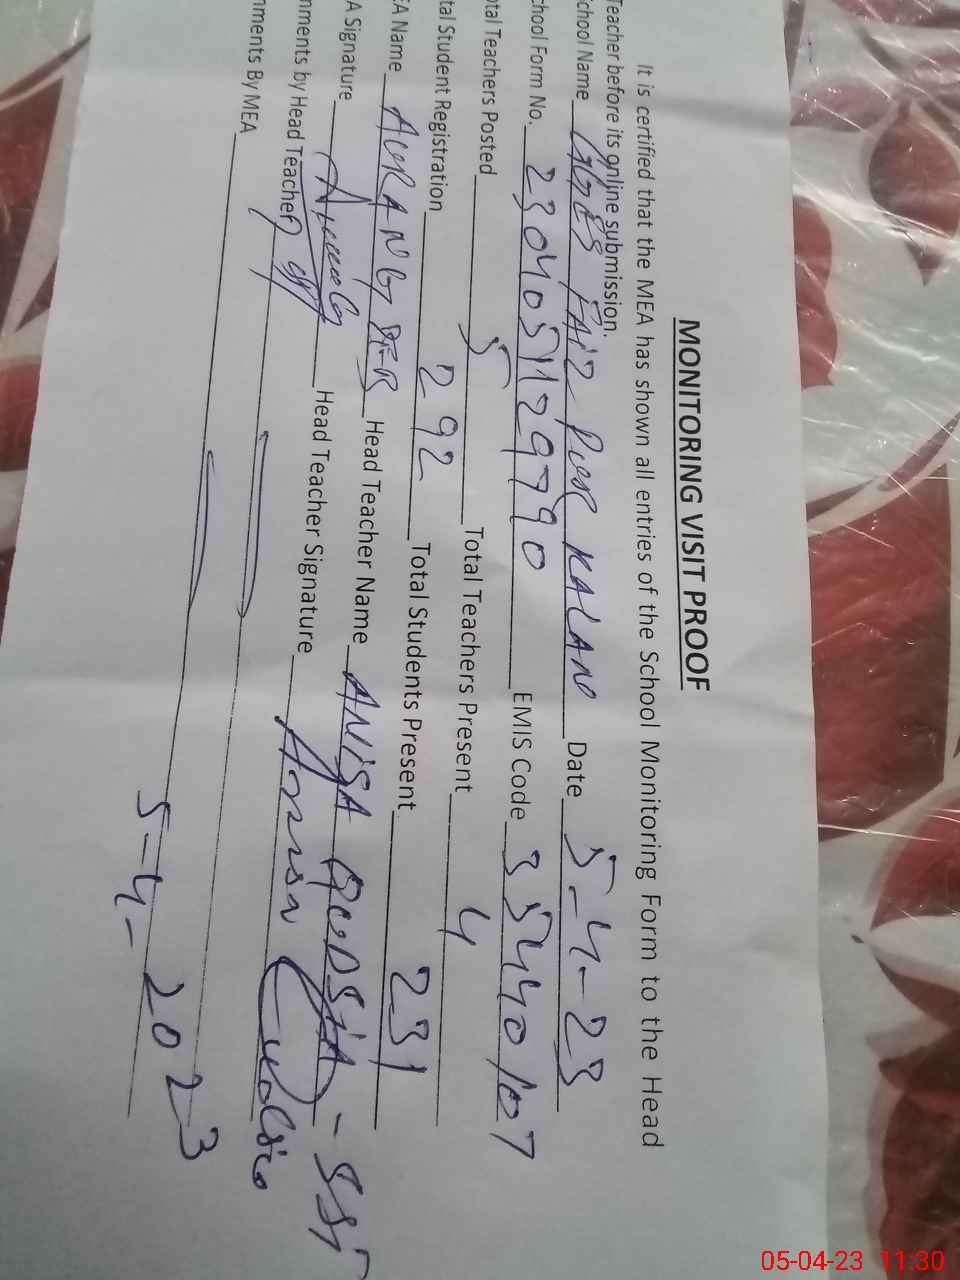 MONITORING VISIT PROOF
It is certified that the MEA has shown all entries of the School Monitoring Form to the Head
Teacher before its online submission.
School Name GGES FAIZ PUR KALAN Date 5-4-23
chool Form No. 230405129790 EMIS Code 35440107
otal Teachers Posted 5 Total Teachers Present 4
tal Student Registration 292 Total Students Present 231
EA Name AURANGZEB Head Teacher Name ANISA QUDSIA - SST
A Signature Head Teacher Signature Anisa Qudsia
mments by Head Teacher
mments By MEA
5-4-2023
05-04-23 11:30